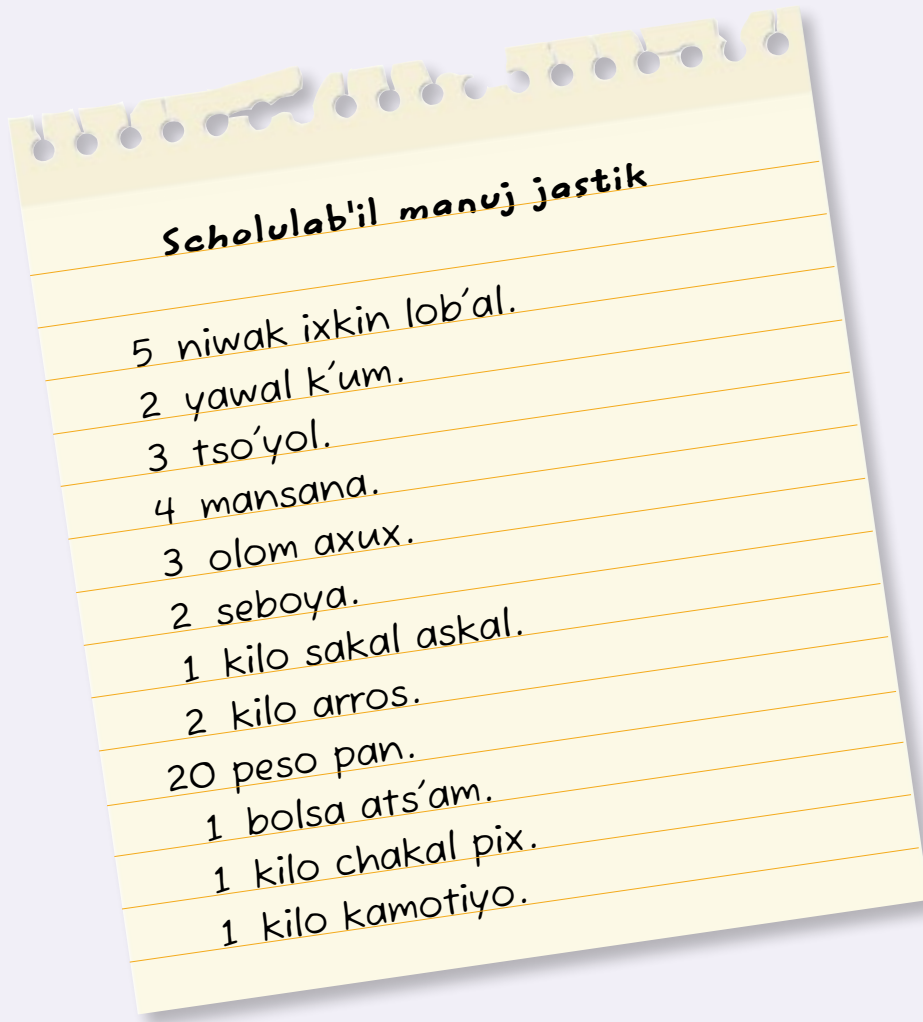 Scholulab'il manuj jastik
5 niwak ixkin lob´al.
2 yawal k´um.
3 tso´yol.
4 mansana.
3 olom axux.
2 seboya.
1 kilo sakal askal.
2 kilo arros.
20 peso pan.
1 bolsa ats´am.
1 kilo chakal pix.
1 kilo kamotiyo.